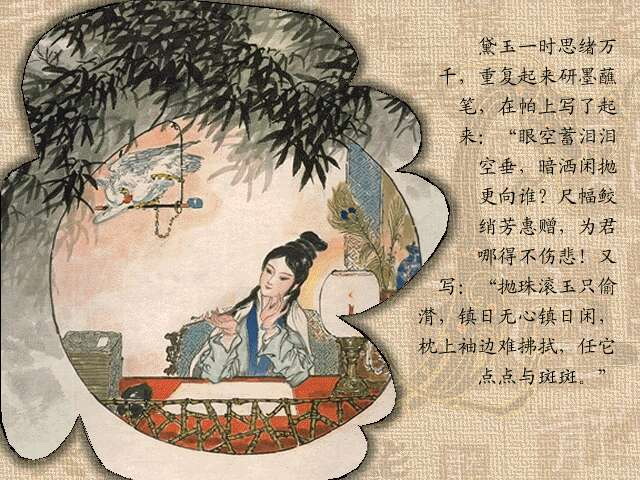 黛玉一时思绪万
千，重复起来研墨蘸
笔，在帕上写了起
来：“眼空蓄泪泪
空垂，暗洒闲抛
更向谁？尺幅鲛
绡芳惠赠，为君
哪得不伤悲！又
写：“抛珠滚玉只偷
潸，镇日无心镇日闲，
枕上袖边难拂拭，任它
点点与斑斑。”